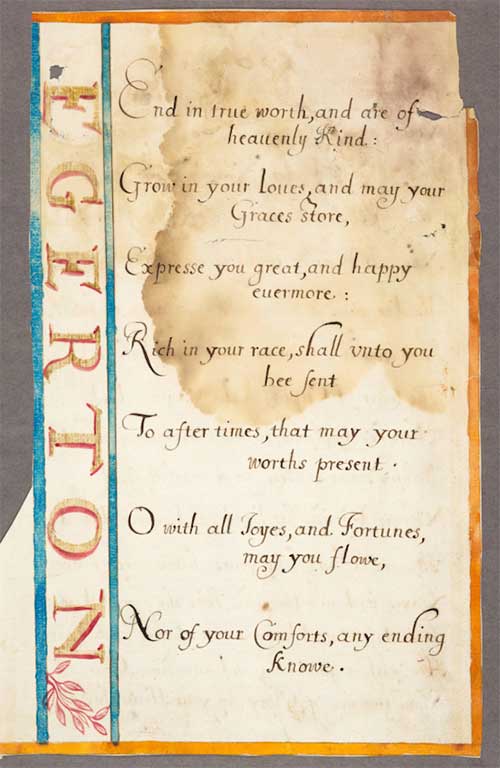 EGERTON
End in true worth, and are of
heauenly Kind :
Grow in your loues, and may your
Graces store,
Expresse you great, and happy
euermore :
Rich in your race, shall vnto you
bee sent
To after times, that may your
worths present .
O with all Ioyes, and Fortunes,
may you flowe,
Nor of your Comforts, any ending
Knowe .